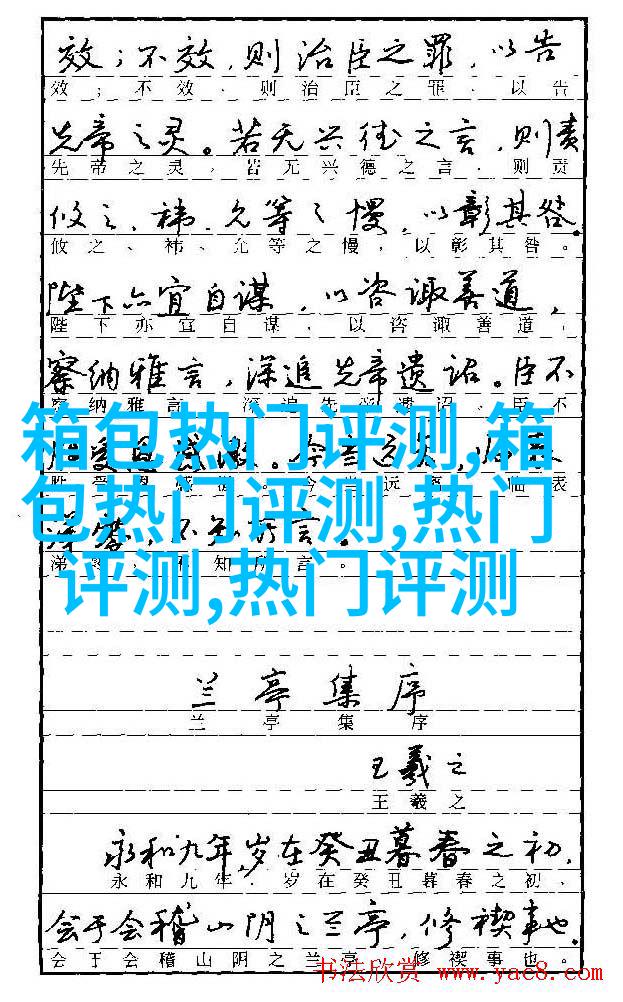 效；不效，则治臣之罪，以告
效；不效、则治臣之罪、以告
先帝之灵。若无兴德之言，则责
先帝之灵。若无兴德之言、则责
攸之、祎、允等之慢，以彰其咎。
攸之、祎、允等之慢，以彰其咎。
陛下亦宜自谋，以咨诹善道，
陛下亦宜自谋，以咨诹善道，
察纳雅言，深追先帝遗诏。臣不
纳雅言 深追先 遗诏 臣不
箱包热门评测,箱
受恩感激。今当远
胜受恩感激。今 远 临表
包热门评测,热门
不知所言。
涕 不知所言。
评测,热门评测
兰亭集序
兰亭集序
王羲之
王羲之
永和九年,岁在癸丑暮春之初,
永和九年，岁在癸丑暮春之初、
会于会稽山阴之兰亭，修禊事也。
会于会稽山阴之兰亭 修禊事也。
书法欣赏 www.yac8.com